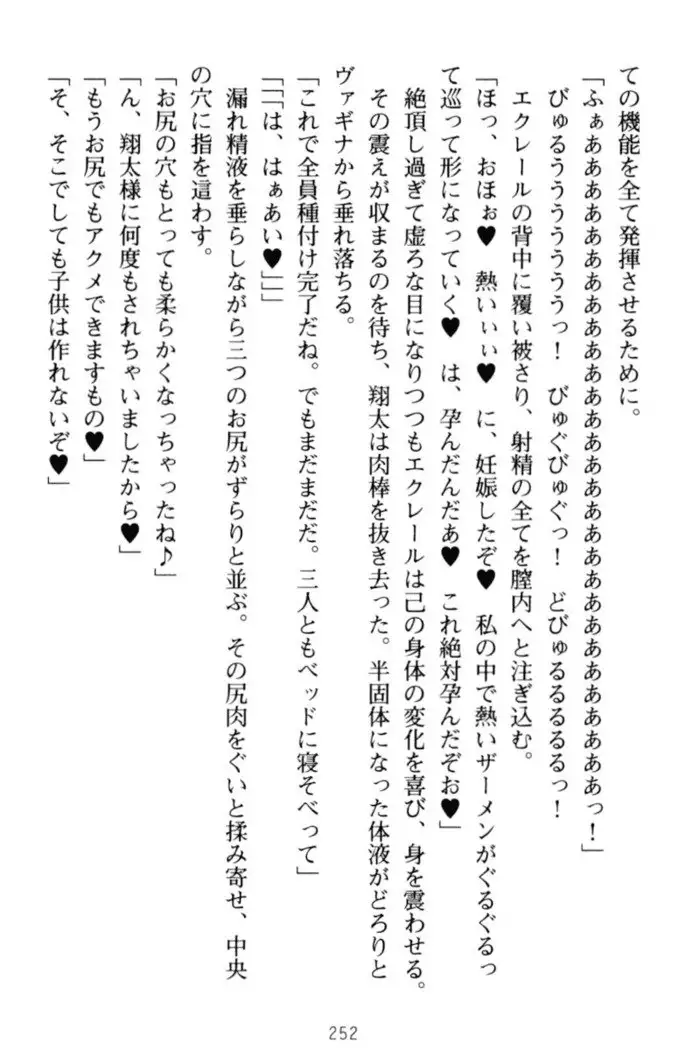 ての機能を全て発揮させるために。
「ふぁああああああああああああああああああああああああああああああっ！」
びゅるううううううっ！　びゅぐびゅぐっ！　どぴゅるるるるるっ！
エクレールの背中に覆い被さり、射精の全てを膣内へと注ぎ込む。
「ほっ、おほぉ♥　熱いぃぃ♥　に、妊娠したぞ♥　私の中で熱いザーメンがぐるぐるっ
て巡って形になっていく♥　は、孕んだんだあ♥　これ絶対孕んだぞお♥」
絶頂し過ぎて虚ろな目になりつつもエクレールは己の身体の変化を喜び、身を震わせる。
その震えが収まるのを待ち、翔太は肉棒を抜き去った。半固体になった体液がどろりと
ヴァギナから垂れ落ちる。
「これで全員種付け完了だね。でもまだまだだ。三人ともベッドに寝そべって」
「「「は、はぁあい♥」」」
漏れ精液を垂らしながら三つのお尻がずらりと並ぶ。その尻肉をぐいと揉み寄せ、中央
の穴に指を這わす。
「お尻の穴もとっても柔らかくなっちゃったね♪」
「ん、翔太様に何度もされちゃいましたから♥」
「もうお尻でもアクメできますもの♥」
「そ、そこでしても子供は作れないぞ♥」
252